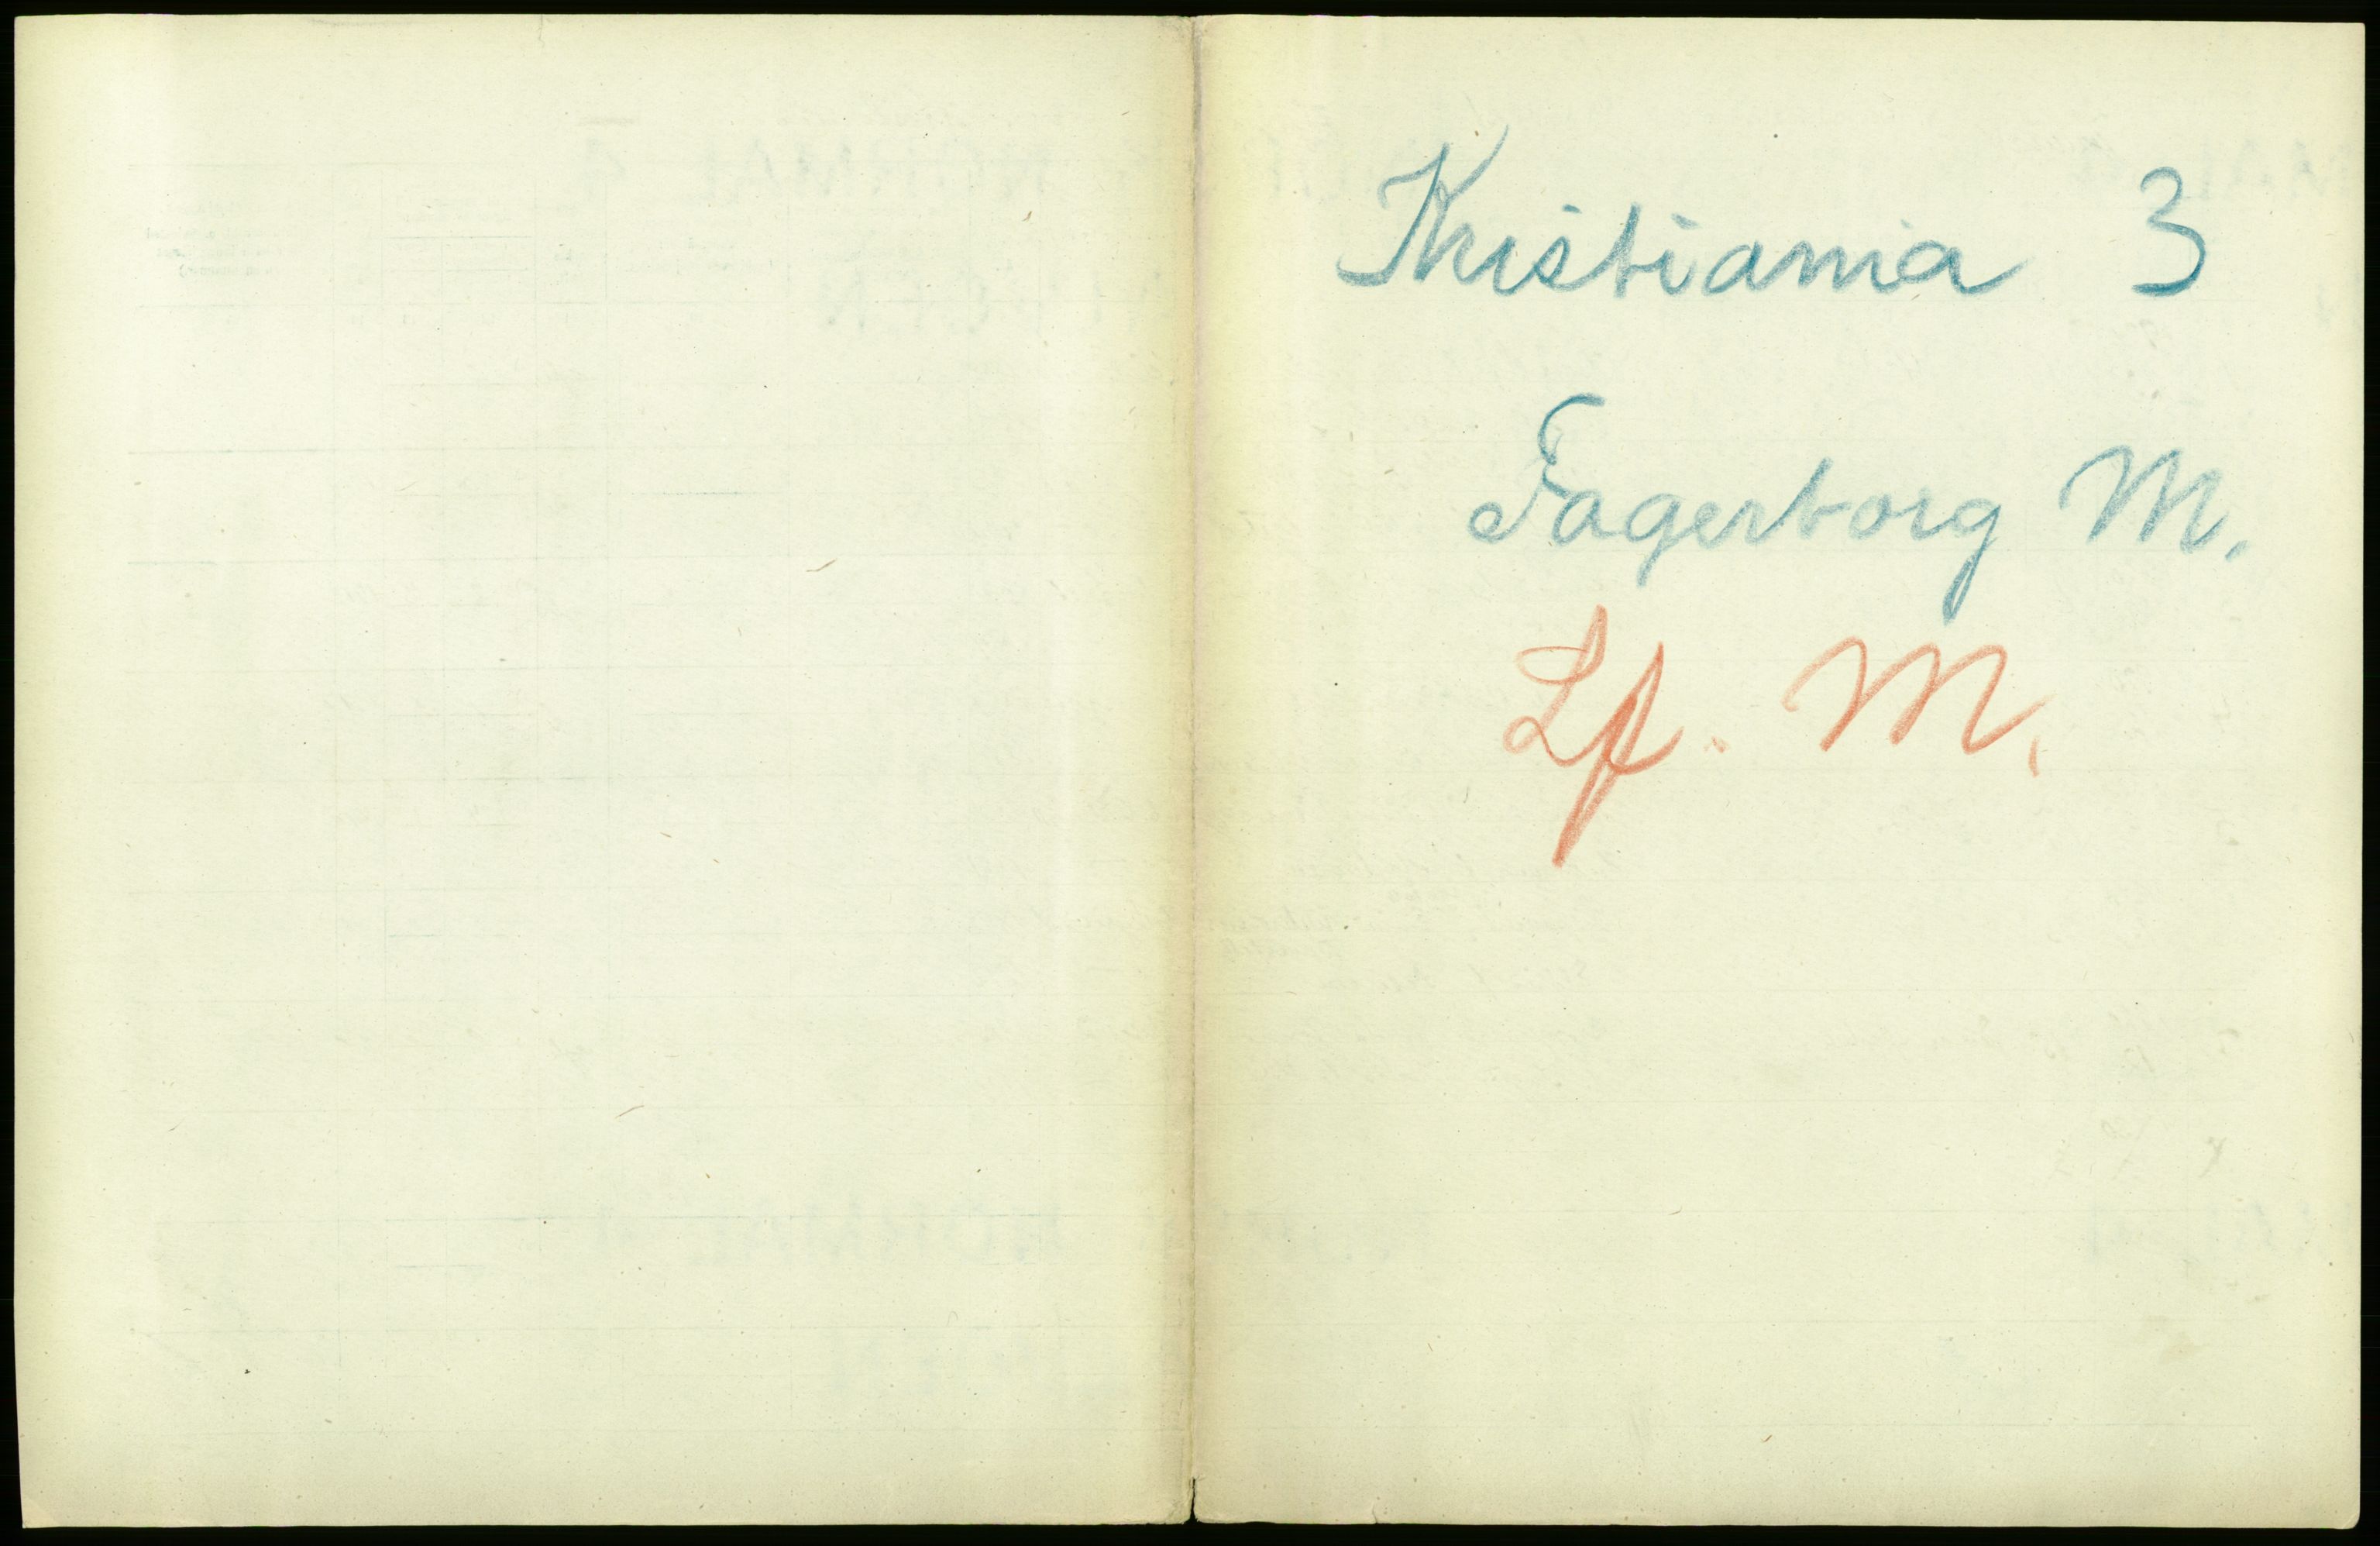 Kristiania 3
Fagerborg M.
Lf. M.